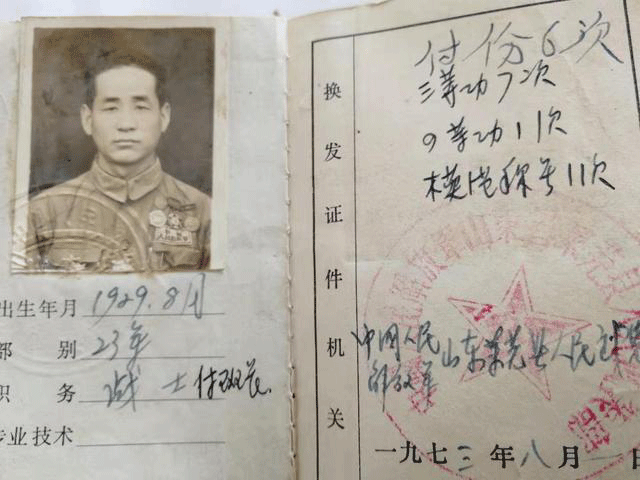 出生年月 1929.8月
部别 23年
职务 战士付班长
专业技术
换发证件机关
付份6次
三等功7次
四等功11次
模范称号11次
中国人民解放军
山东莱芜县人民
一九七三年八月一日